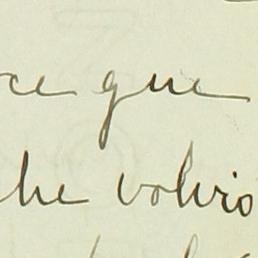 ce que
che volvió